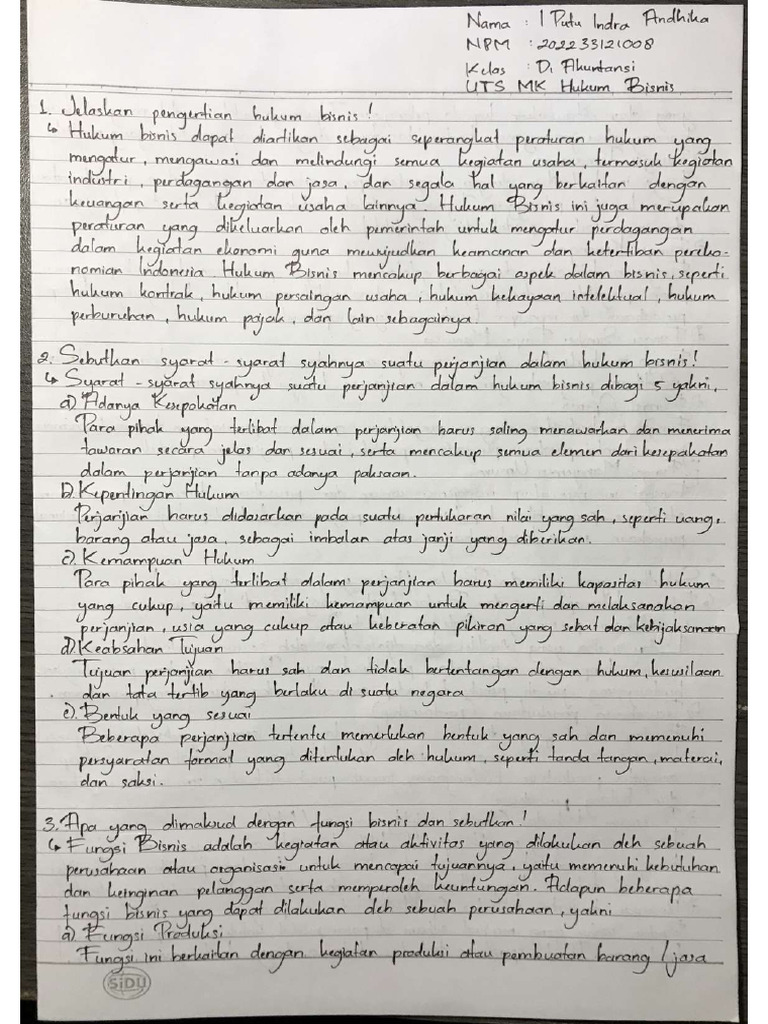 Nama : I Putu Indra Andhika
NPM : 202233121008
Kelas : D1 Akuntansi
UTS MK Hukum Bisnis
1. Jelaskan pengertian hukum bisnis!
↳ Hukum bisnis dapat diartikan sebagai seperangkat peraturan hukum yang
mengatur, mengawasi dan melindungi semua kegiatan usaha, termasuk kegiatan
industri, perdagangan dan jasa, dan segala hal yang berkaitan dengan
keuangan serta kegiatan usaha lainnya. Hukum Bisnis ini juga merupakan
peraturan yang dikeluarkan oleh pemerintah untuk mengatur perdagangan
dalam kegiatan ekonomi guna mewujudkan keamanan dan ketertiban pereko-
nomian Indonesia. Hukum Bisnis mencakup berbagai aspek dalam bisnis, seperti
hukum kontrak, hukum persaingan usaha, hukum kekayaan intelektual, hukum
perburuhan, hukum pajak, dan lain sebagainya.
2. Sebutkan syarat-syarat syahnya suatu perjanjian dalam hukum bisnis!
↳ Syarat-syarat syahnya suatu perjanjian dalam hukum bisnis dibagi 5 yakni.
a) Adanya Kesepakatan
Para pihak yang terlibat dalam perjanjian harus saling menawarkan dan menerima
tawaran secara jelas dan sesuai, serta mencakup semua elemen dari kesepakatan
dalam perjanjian tanpa adanya paksaan.
b) Kepentingan Hukum
Perjanjian harus didasarkan pada suatu pertukaran nilai yang sah, seperti uang,
barang atau jasa, sebagai imbalan atas janji yang diberikan.
c) Kemampuan Hukum
Para pihak yang terlibat dalam perjanjian harus memiliki kapasitas hukum
yang cukup, yaitu memiliki kemampuan untuk mengerti dan melaksanakan
perjanjian, usia yang cukup atau keberatan pikiran yang sehat dan kebijaksanaan
d) Keabsahan Tujuan
Tujuan perjanjian harus sah dan tidak bertentangan dengan hukum, kesusilaan
dan tata tertib yang berlaku di suatu negara
e) Bentuk yang sesuai
Beberapa perjanjian tertentu memerlukan bentuk yang sah dan memenuhi
persyaratan formal yang diterlukan oleh hukum, seperti tanda tangan, materai,
dan saksi.
3. Apa yang dimaksud dengan fungsi bisnis dan sebutkan!
↳ Fungsi Bisnis adalah kegiatan atau aktivitas yang dilakukan oleh sebuah
perusahaan atau organisasi untuk mencapai tujuannya, yaitu memenuhi kebutuhan
dan keinginan pelanggan serta memperoleh keuntungan. Adapun beberapa
fungsi bisnis yang dapat dilakukan oleh sebuah perusahaan, yakni
a) Fungsi Produksi
Fungsi ini berkaitan dengan kegiatan produksi atau pembuatan barang / jasa
SiDU